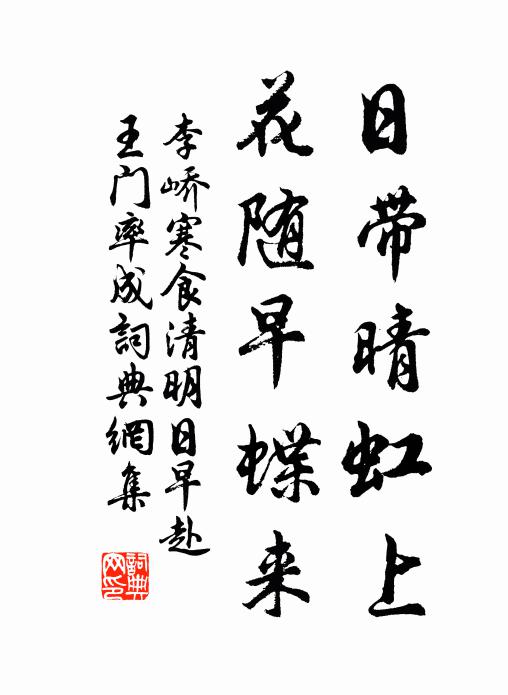 日带晴虹上
花随早蝶来
李峤寒食清明日早赴
王门率成詞典網集
詞典
网印